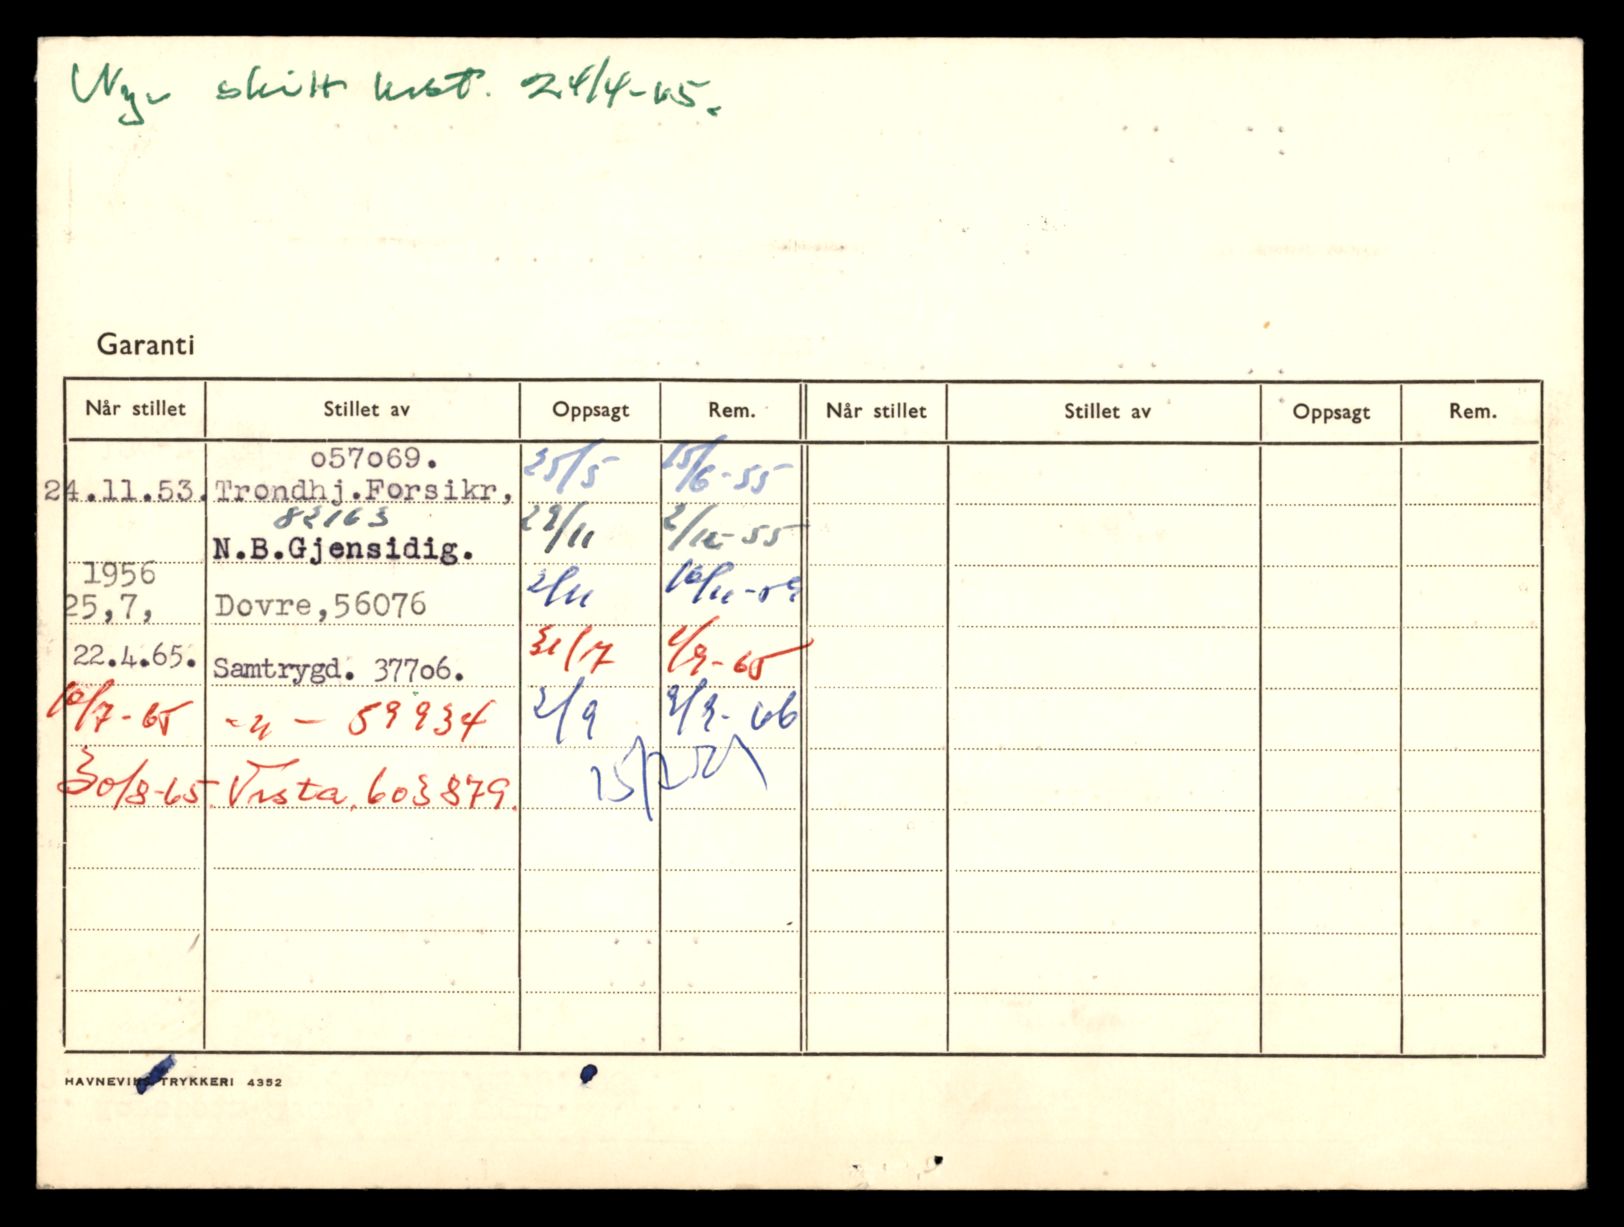 Nye skilt kost. 24/4-65.
Garanti
Når stillet Stillet av Oppsagt Rem. Når stillet Stillet av Oppsagt Rem.
057069.
24.11.53. Trondhj.Forsikr, 25/5 15/6-55
82163
N.B.Gjensidig. 29/11 2/12-55
1956
25,7, Dovre,56076 2/11 10/11-59
22.4.65. Samtrygd. 37706. 31/7 2/9-65
10/7-65 -"- 59934 2/9 9/9-66
30/8-65. Vesta. 603879.
HAVNEVIKS TRYKKERI 4352